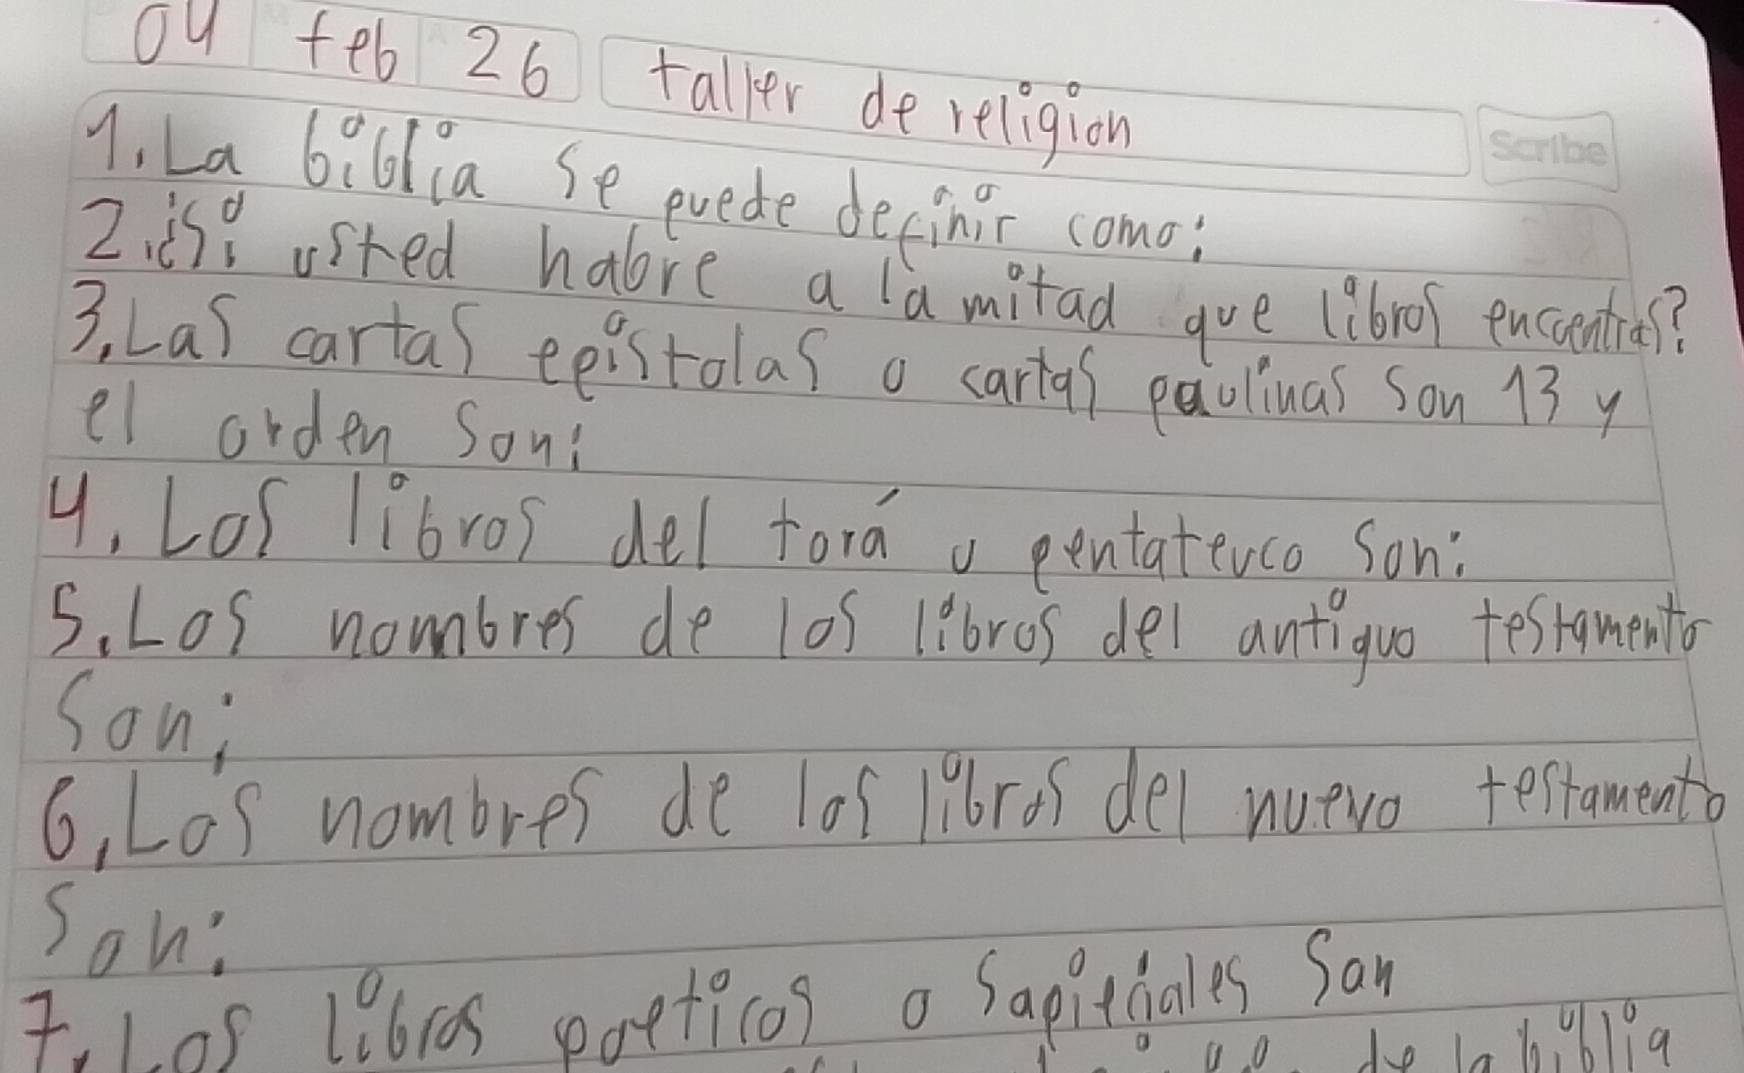 04 feb 26 taller de religion
Scribe
1. La biblia se puede definir como:
2. ¿si usted habre a la mitad que libros encuentras?
3. Las cartas epistolas o cartas paulinas son 13 y
el orden son:
4. Los libros del torá o pentateuco son:
5. Los nombres de los libros del antiguo testamento
son:
6. Los nombres de los libros del nuevo testamento
son:
7. Los libros poeticos o sapienciales son
de la biblia